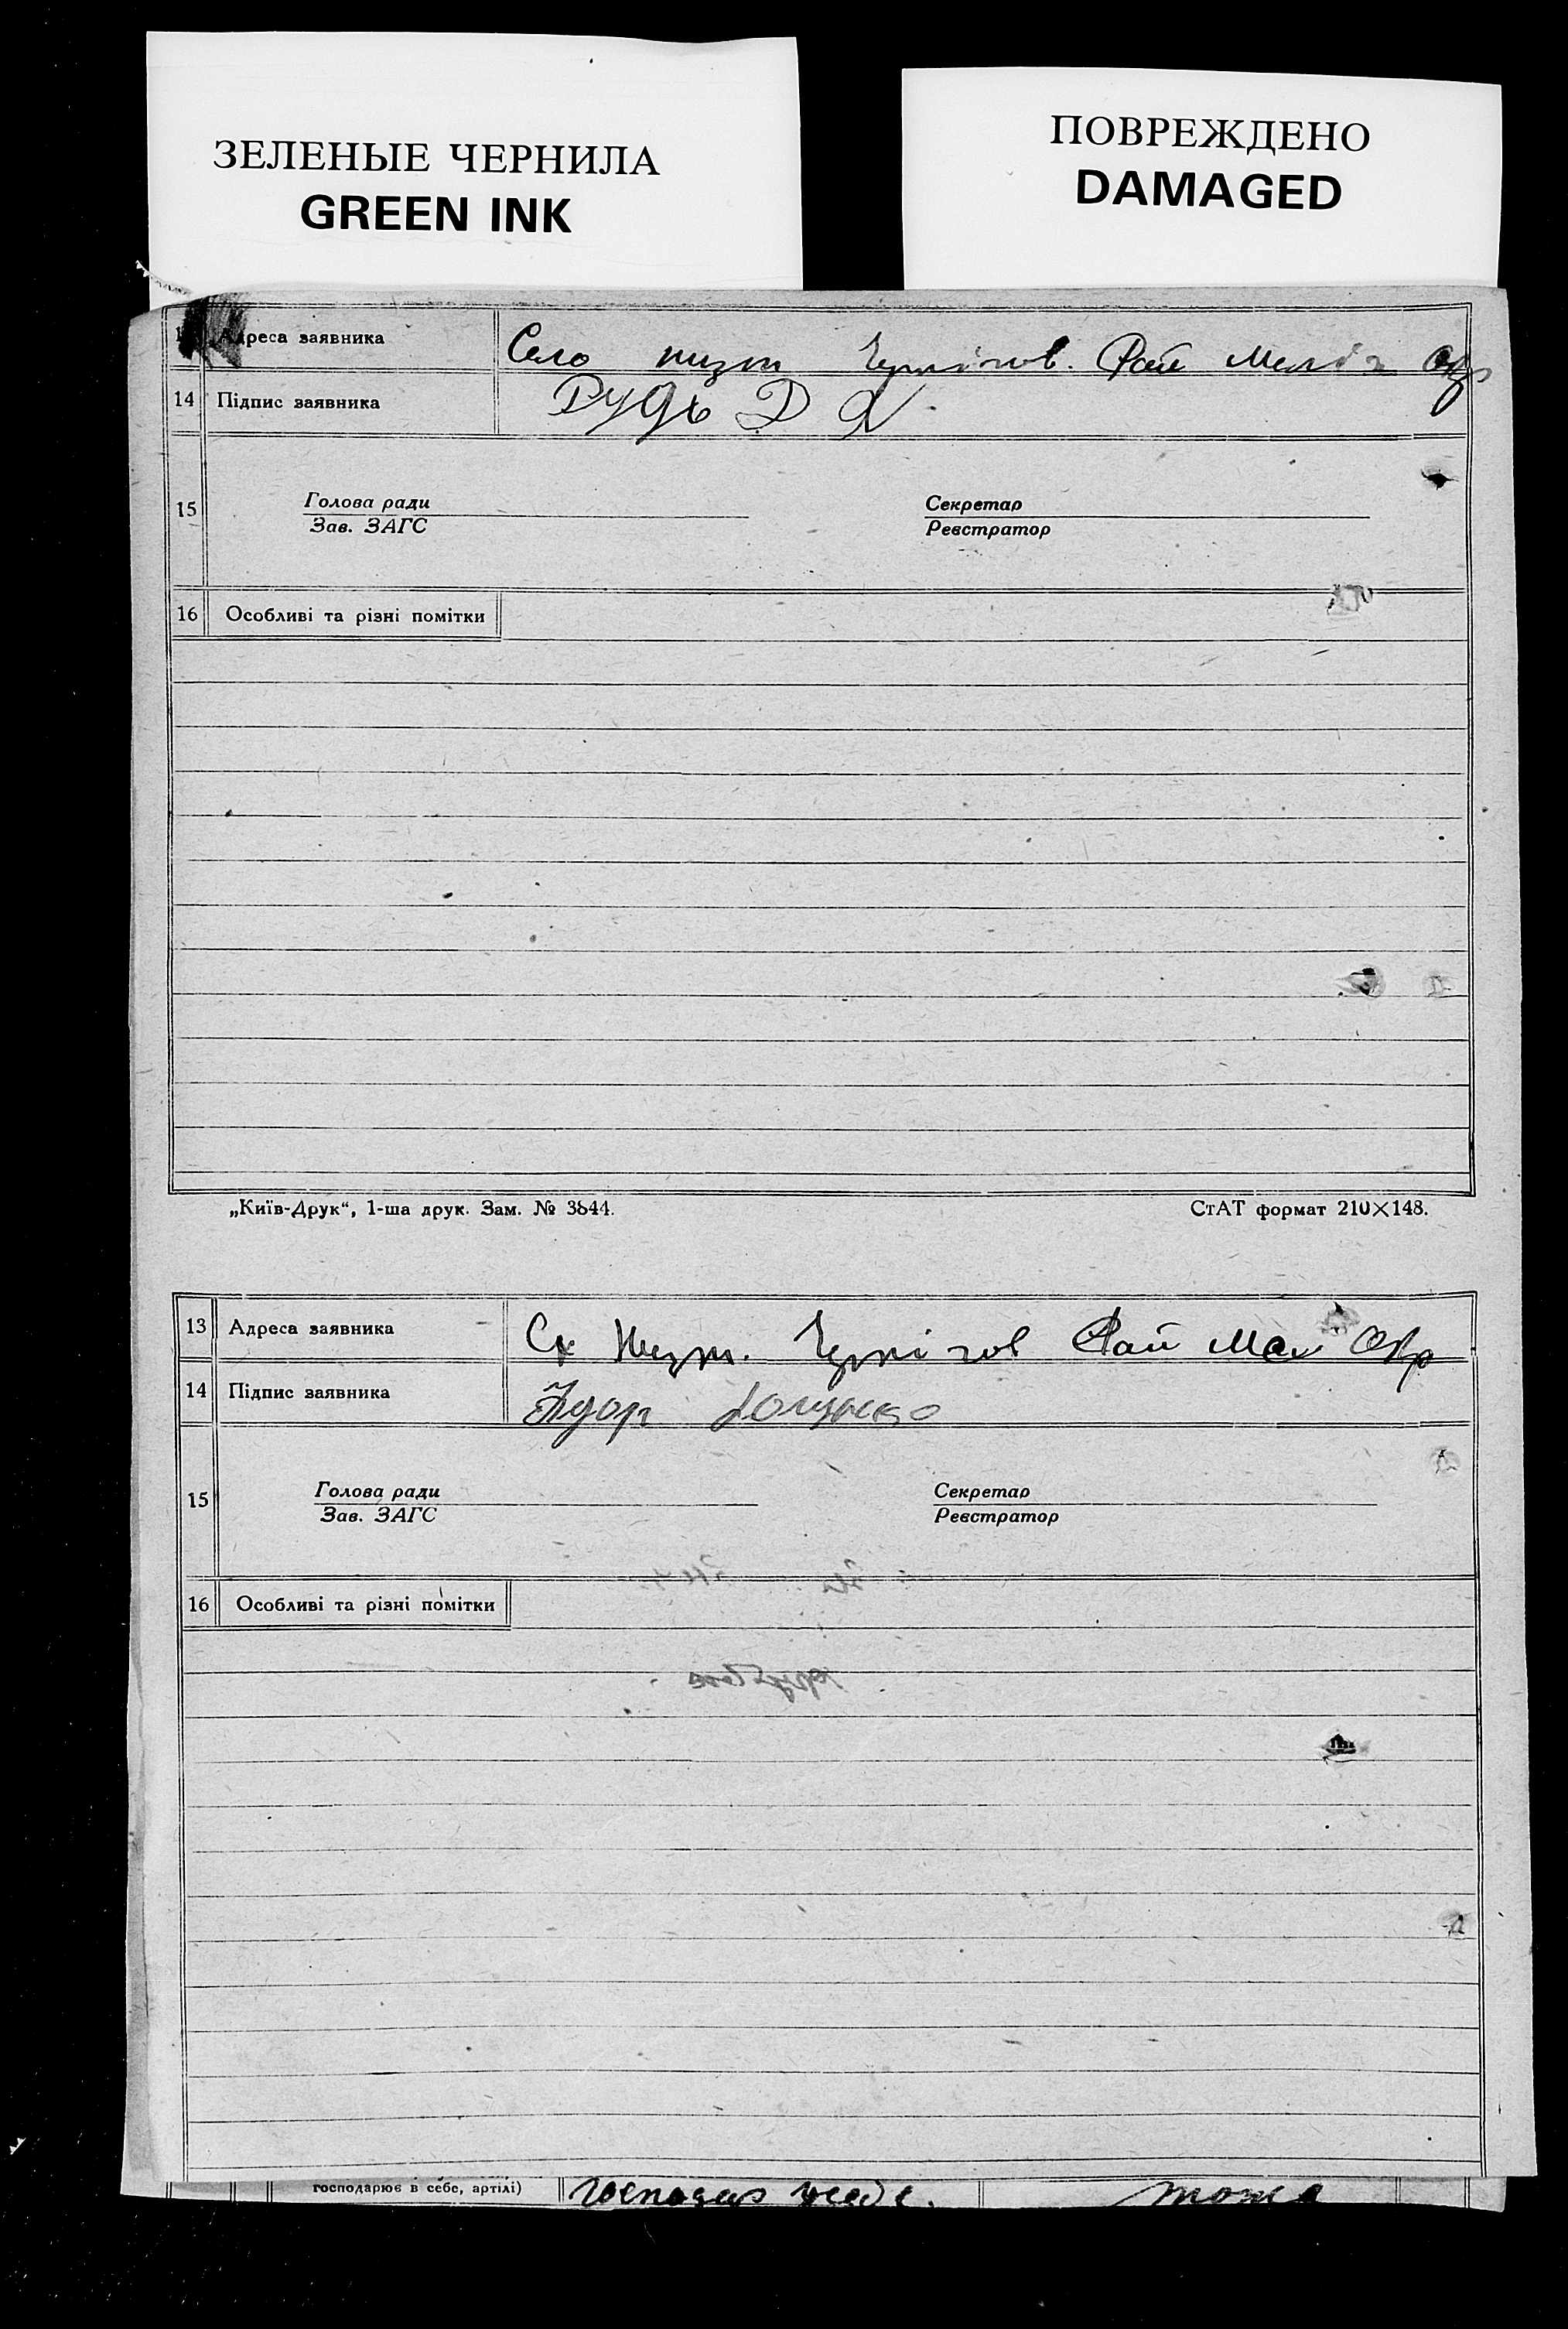 ЗЕЛЕНЫЕ ЧЕРНИЛА
GREEN INK
ПОВРЕЖДЕНО
DAMAGED
Адреса заявника Село Рай
14 Підпис заявника Рудь Д
15 Голова ради Секретар
Зав. ЗАГС Реєстратор
16 Особливі та різні помітки
„Київ-Друк“, 1-ша друк. Зам. № 3844. СтАТ формат 210×148.
13 Адреса заявника Рай Мел Окр
14 Підпис заявника
15 Голова ради Секретар
Зав. ЗАГС Реєстратор
16 Особливі та різні помітки
господарює в себе, артілі)